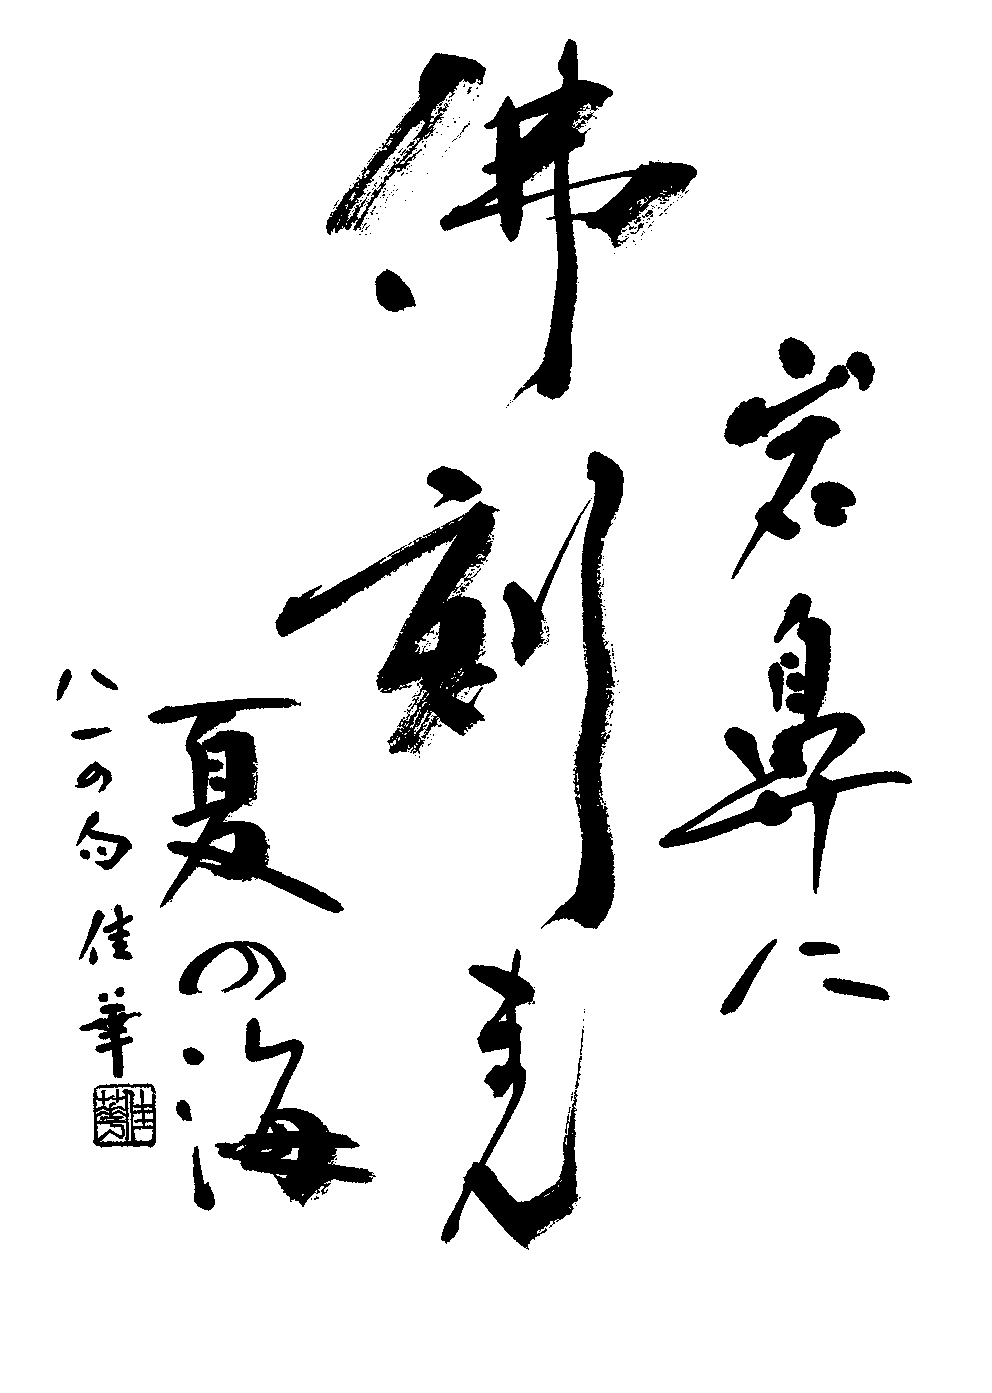 岩鼻に
佛刻まん
夏の海
八一の句 佳華
佳華